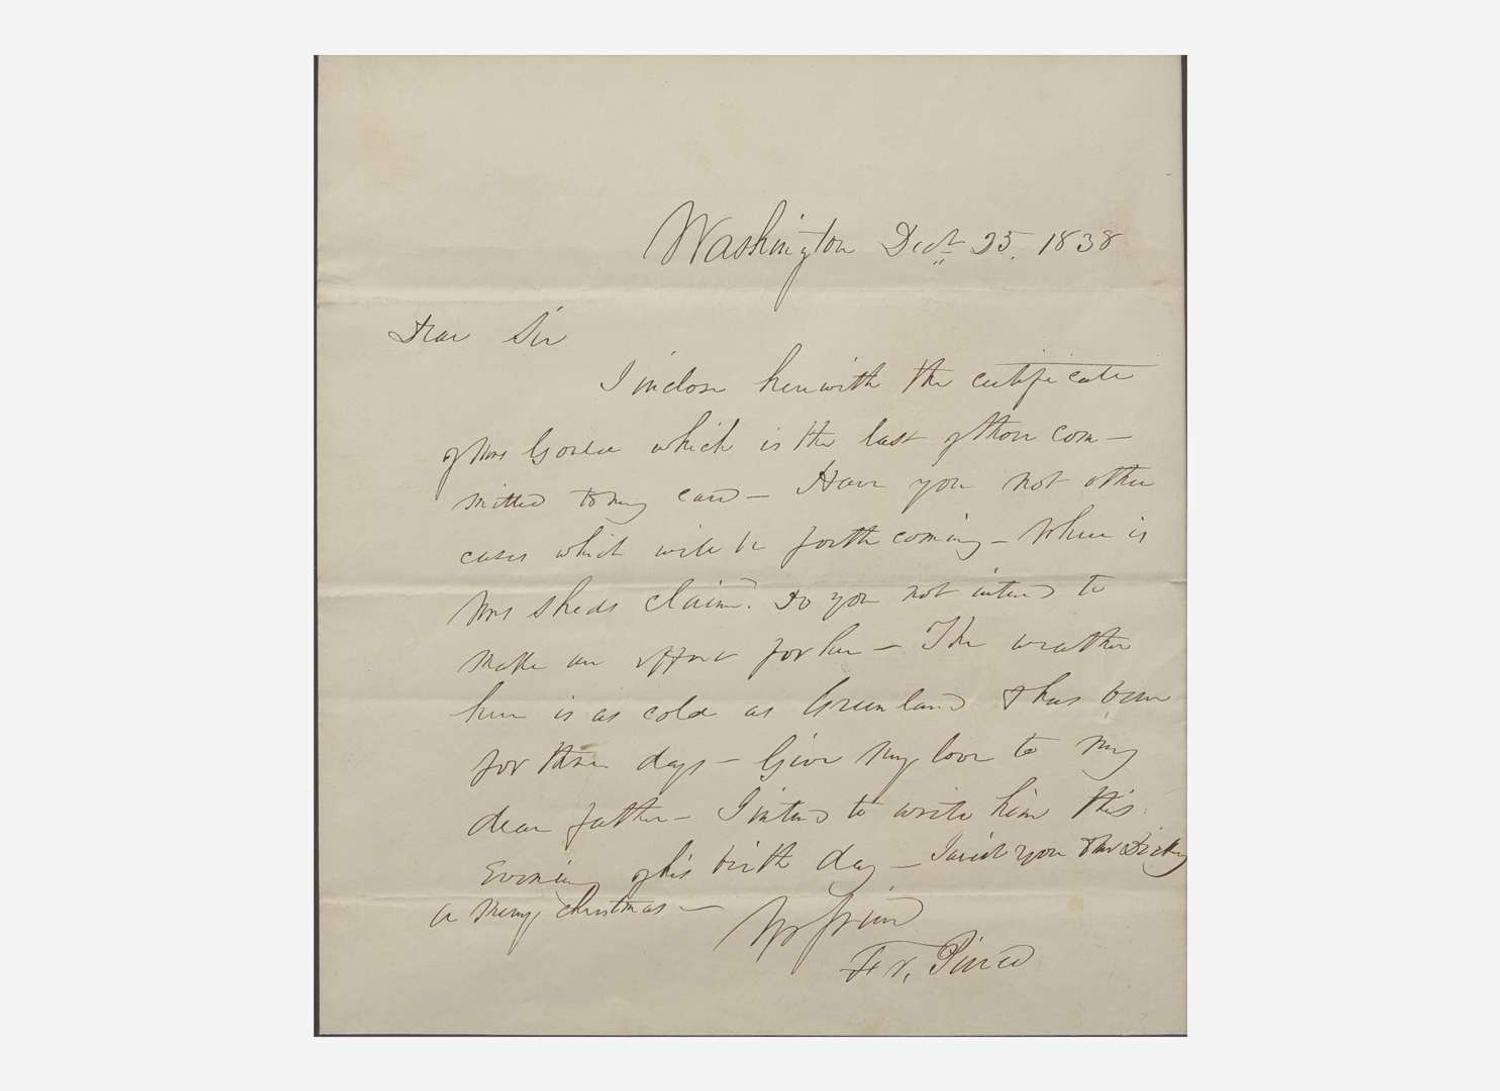 Washington Decr 25. 1838
Dear Sir
I inclose herewith the certificate
of Mrs which is the last of those com-
mitted to my care - Have you not other
cases which will be forth coming - Where is
Mrs Sheds claim? Do you not intend to
make an effort for her - The weather
here is as cold as Greenland & has been
for three days - Give my love to my
dear father - I intend to write him this
evening of his birth day - I wish you
a merry christmas - Yr friend
Fr. Pierce